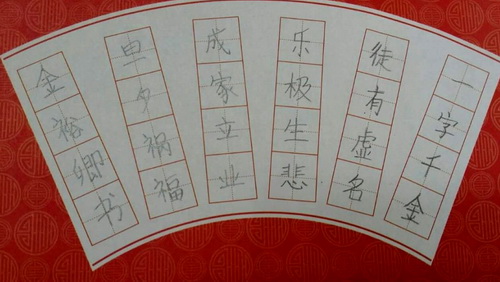 一字千金
徒有虚名
乐极生悲
成家立业
旦夕祸福
金裕卿书